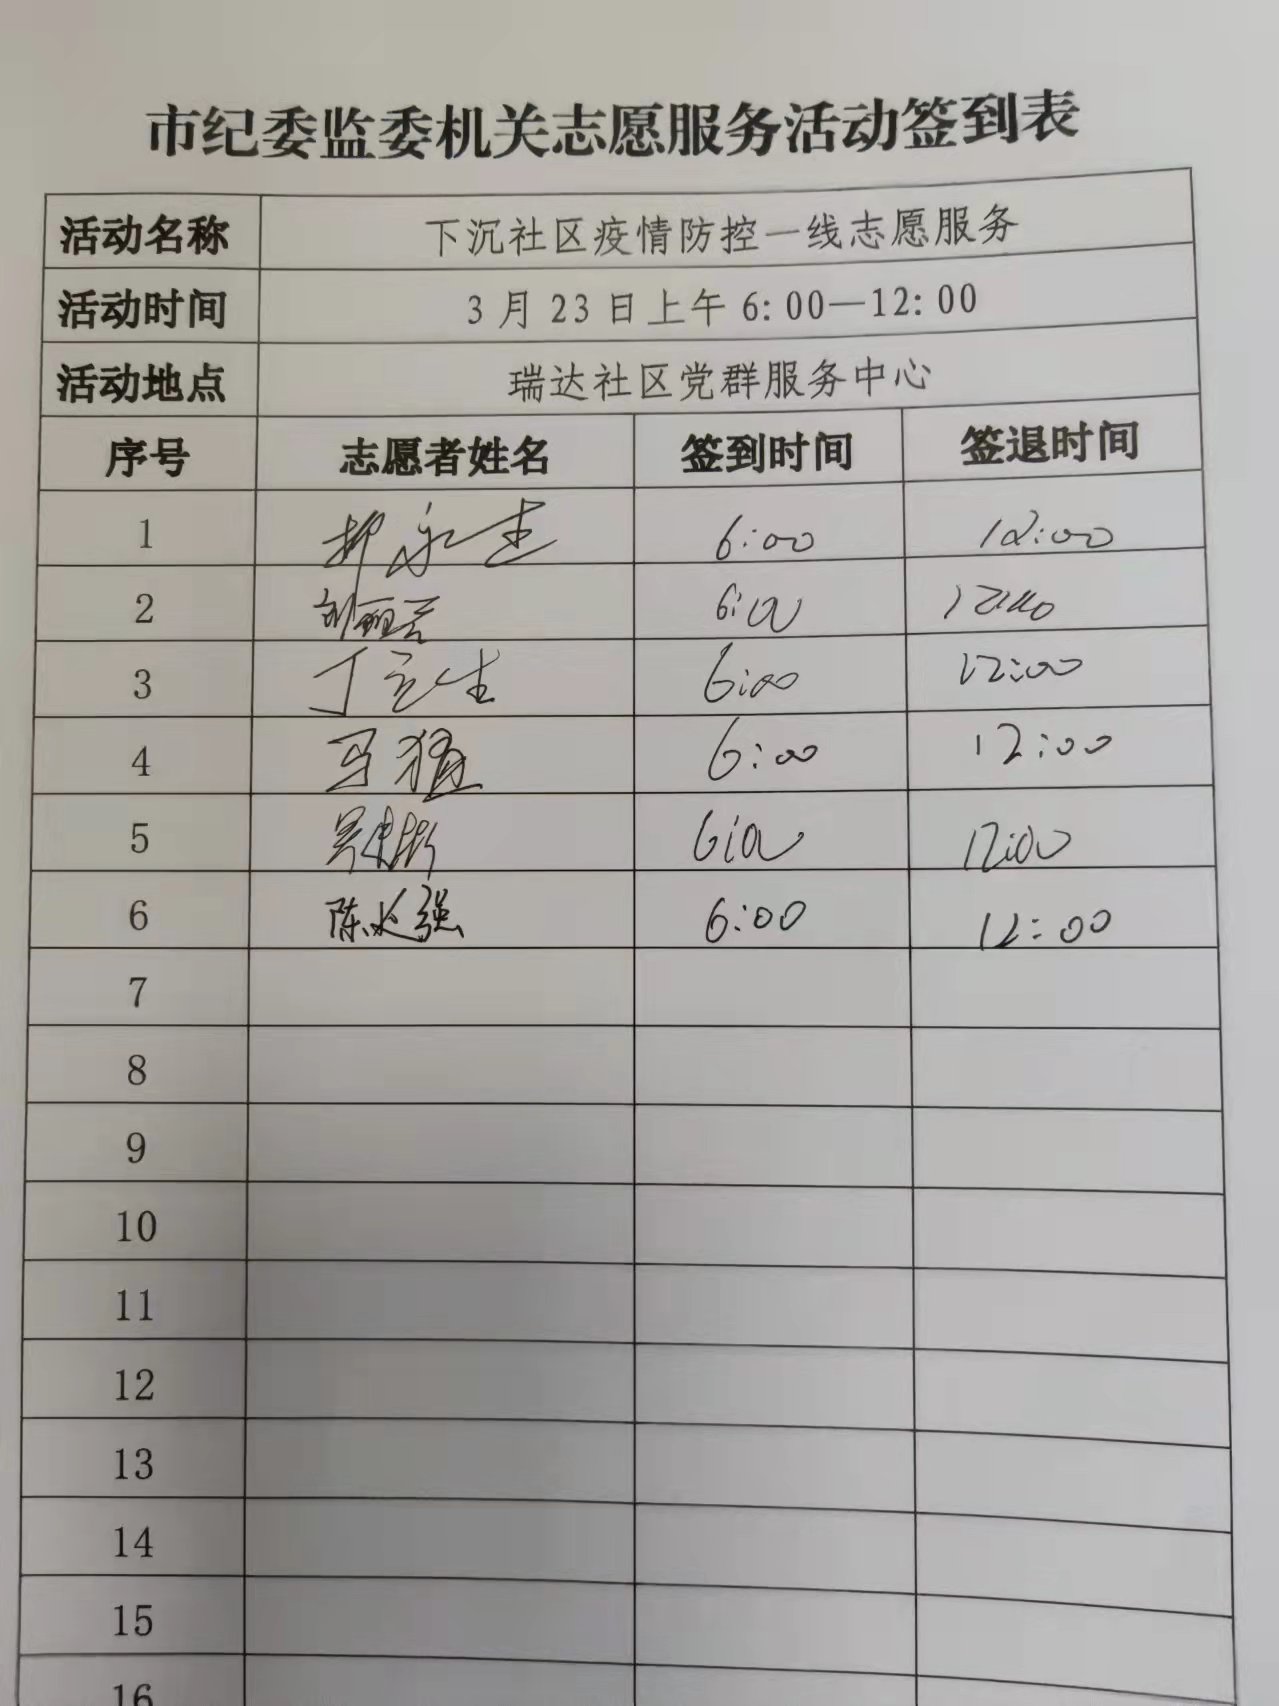 市纪委监委机关志愿服务活动签到表
活动名称 下沉社区疫情防控一线志愿服务
活动时间 3月23日上午6:00—12:00
活动地点 瑞达社区党群服务中心
序号 志愿者姓名 签到时间 签退时间
1 6:00 12:00
2 6:00 12:00
3 丁立生 6:00 12:00
4 马猛 6:00 12:00
5 6:00 12:00
6 陈火强 6:00 12:00
7
8
9
10
11
12
13
14
15
16